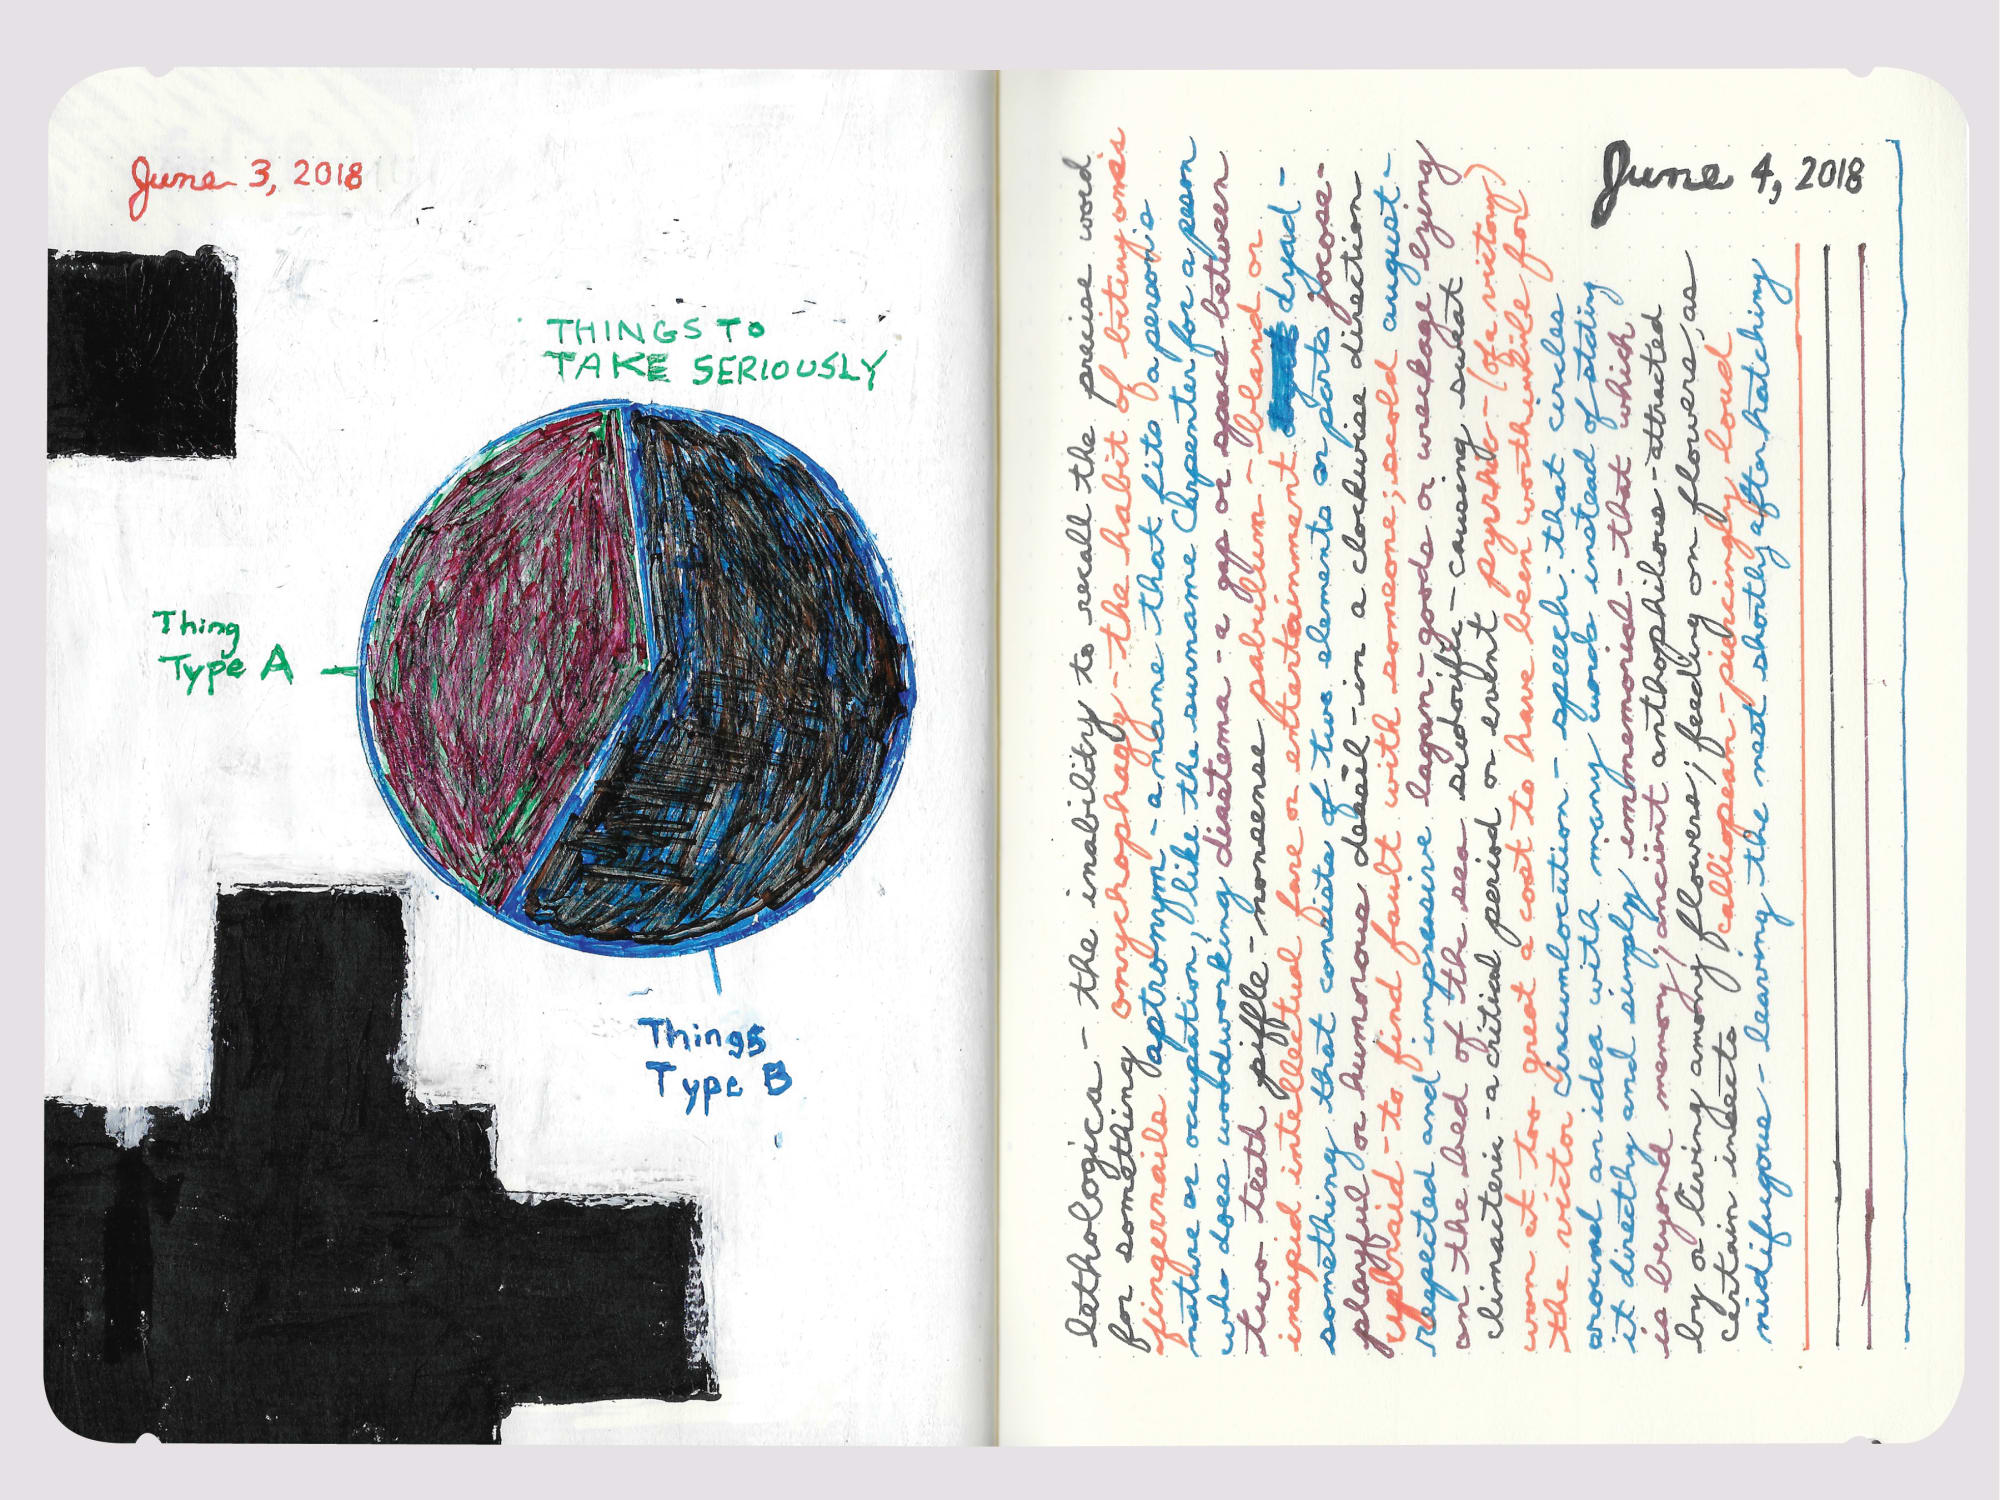 June 3, 2018
THINGS TO
TAKE SERIOUSLY
Thing
Type A
Things
Type B
June 4, 2018
lethologica - the inability to recall the precise word
for something onychophagy - the habit of biting one's
fingernails aptronym - a name that fits a person's
nature or occupation, like the surname Carpenter for a peson
who does woodworking diastema - a gap or space between
two teeth piffle - nonsense pabulum - bland or
insipid intellectual fare or entertainment dyad -
something that consists of two elements or parts jocose -
playful or humorous deasil - in a clockwise direction
upbraid - to find fault with someone; scold august -
respected and impressive lagan - goods or wreckage lying
on the bed of the sea sudorific - causing sweat
climacteric - a critical period or event pyrrhic - (of a victory)
won at too great a cost to have been worthwhile for
the victor circumlocution - speech that circles
around an idea with many words instead of stating
it directly and simply immemorial - that which
is beyond memory; ancient anthophilous - attracted
by or living among flowers; feeding on flowers, as
certain insects calliopean - piercingly loud
nidifugous - leaving the nest shortly after hatching